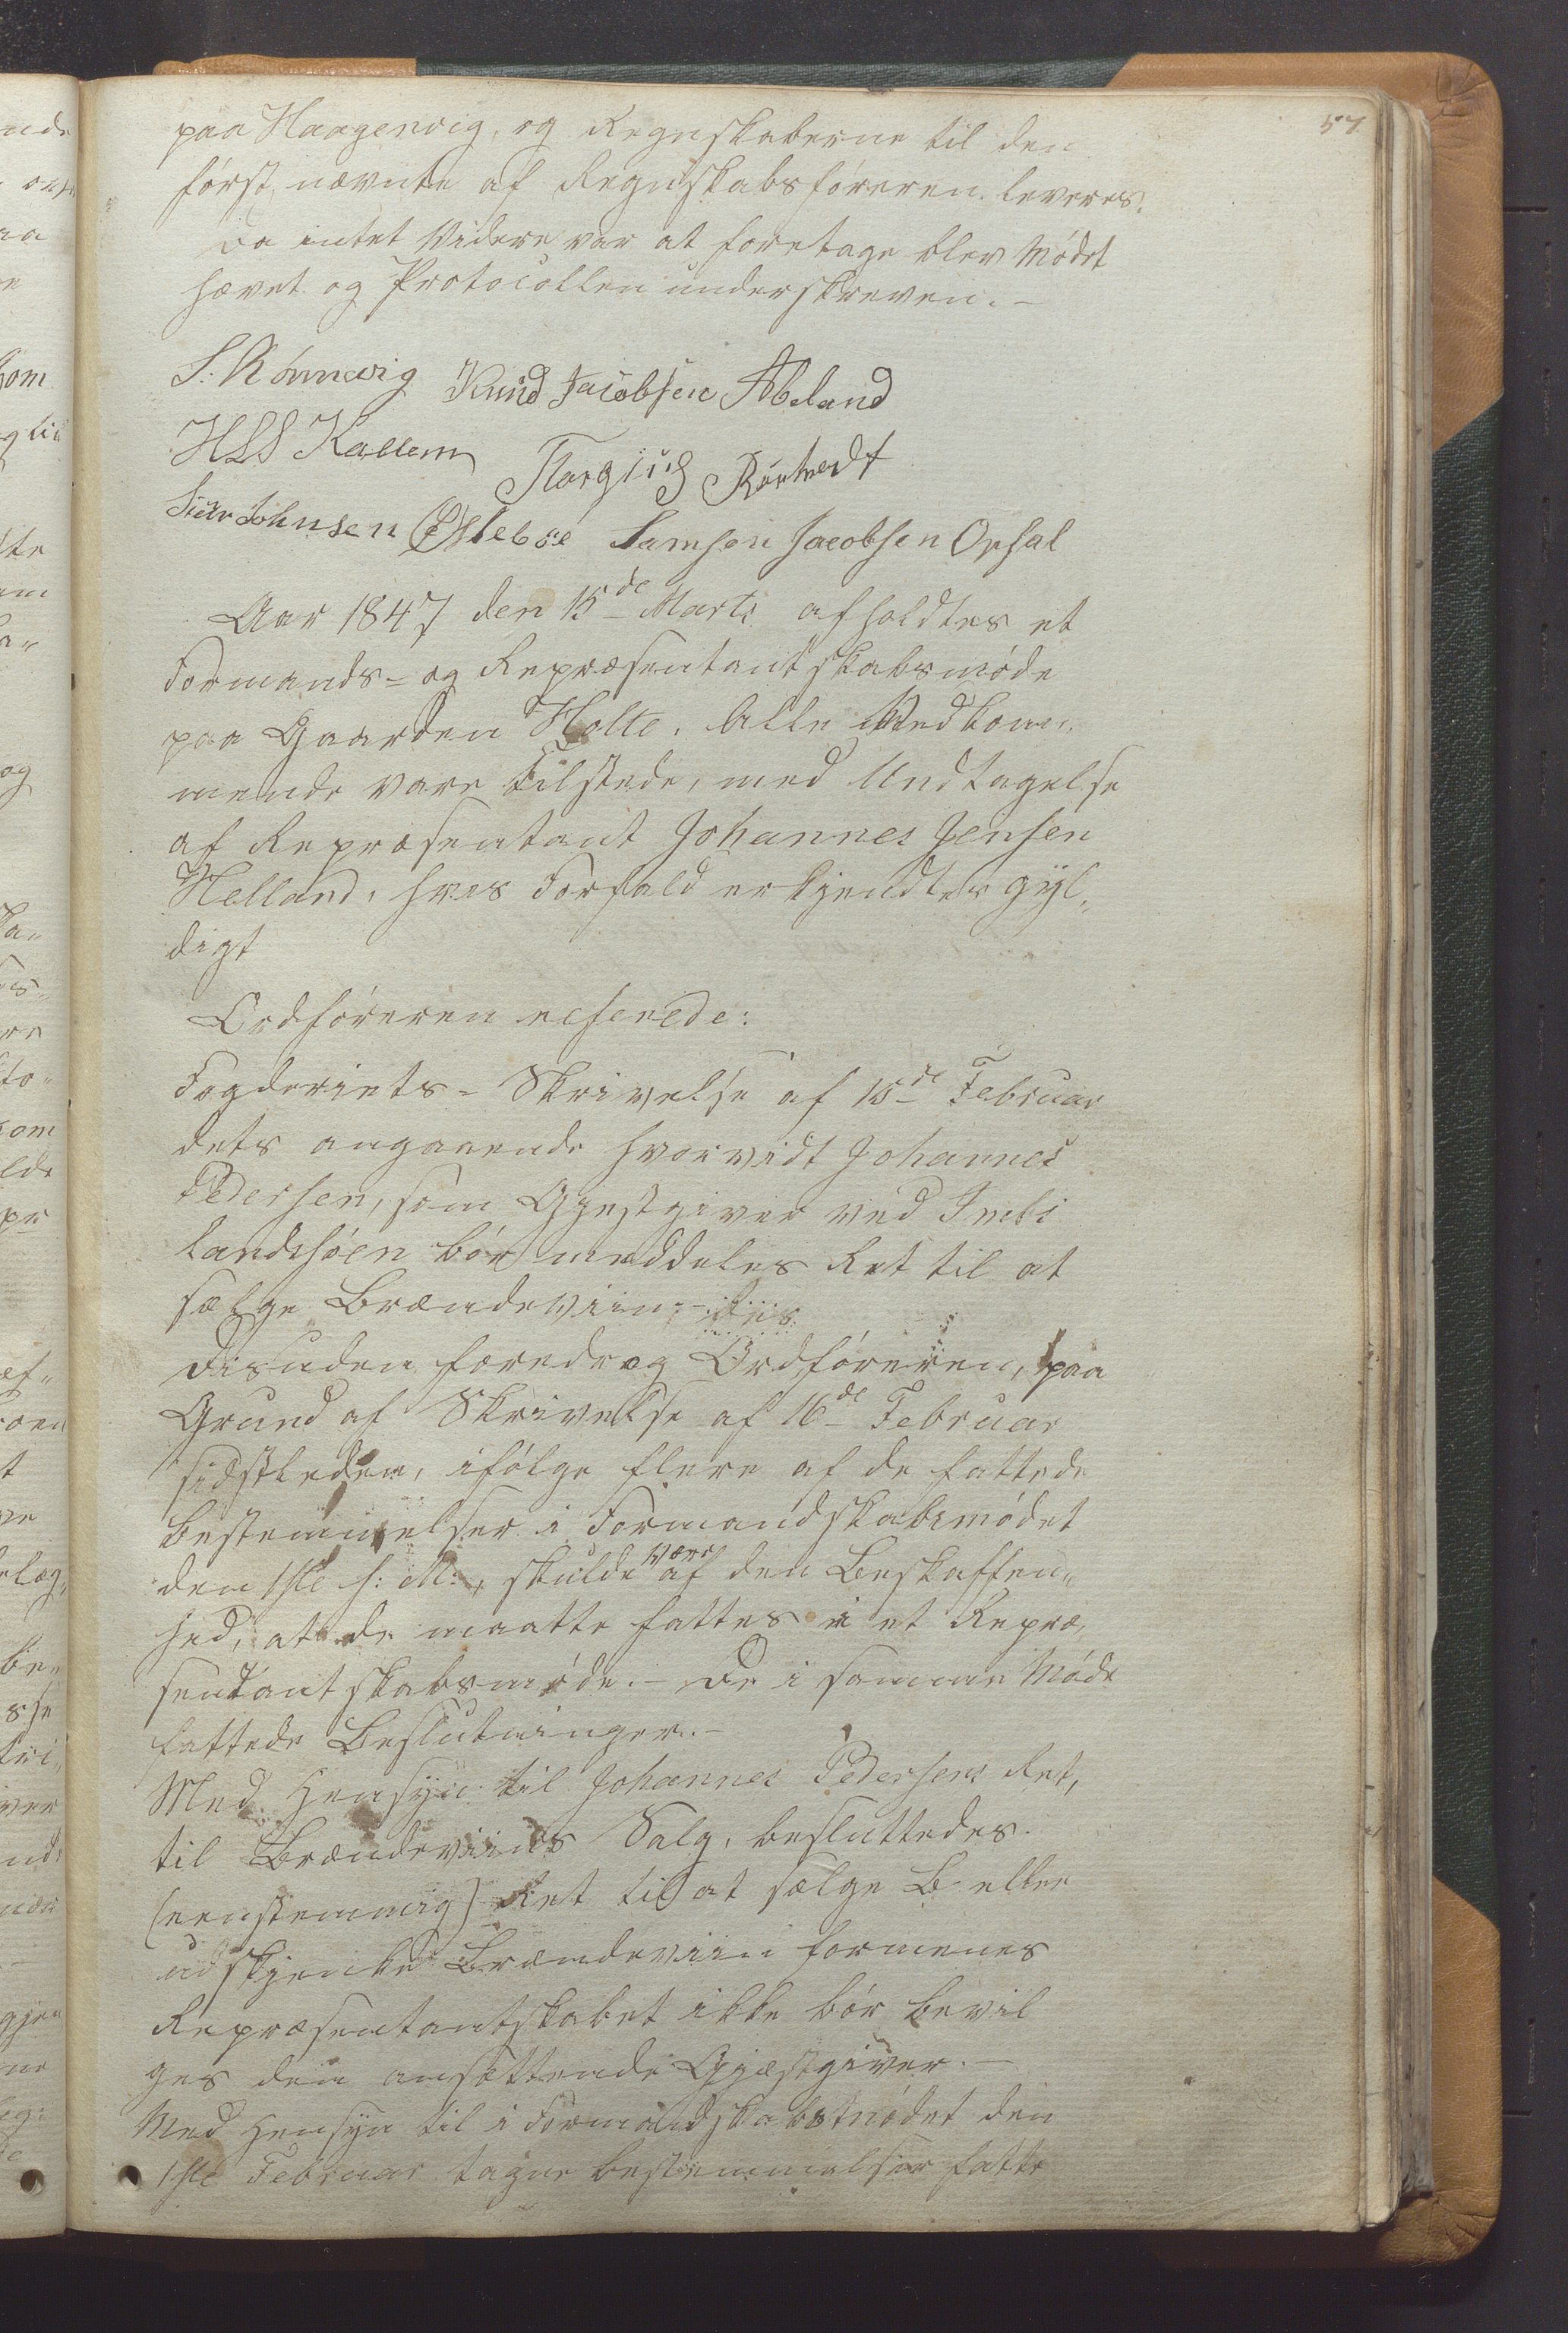 57.
paa Haagenvig, og Regnskaberne til den
först nævnte af Regnskabsföreren leveres.
Da intet Videre var at foretage blev Mödet
hævet og Protocollen underskreven.-
S. Rönnevig Knud Jacobsen Abeland
HSS Kallem Targius Rörtvedt
Siver Johnsen Östebøe Samson Jacobsen Opsal
Aar 1847 den 15de Marts afholdtes et
Formands- og Repræsentantskabsmöde
paa Gaarden Holte. Alle Vedkom„
mende vare tilstede, med Undtagelse
af Repræsentant Johannes Jensen
Helland, hvis Forfald erkjendtes gyl„
digt
Ordföreren refererede:
Fogderiets- Skrivelse af 15de Februar
dets angaaende hvorvidt Johannes
Pedersen, som Gjestgiver ved Imbs
landsöen bör meddeles Ret til at
sælge Brændeviin.- des
Desuden foredrog Ordföreren, paa
Grund af Skrivelse af 16de Februar
sidstleden, ifölge flere af de fattede
Bestemmelser i Formandskabsmödet
den 1ste f: M:, skulde være af den Beskaffen„
hed, at de maatte fattes i et Repræ„
sentantskabsmöde.- De i samme Möde
fattede Beslutninger.-
Med Hensyn til Johannes Pedersens Ret,
til Brændeviins Salg, besluttedes.
(eenstemmig) Ret til at sælge B eller
udskjenke Brændeviin formenes
Repræsentantskabet ikke bör bevil
ges den ansættende Gjæstgiver.-
Med Hensyn til i Formandskabsmödet den
1ste Februar tagne bestemmelser fatte